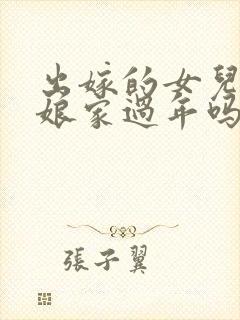 出嫁的女兒
娘家過年嗎
張子翼